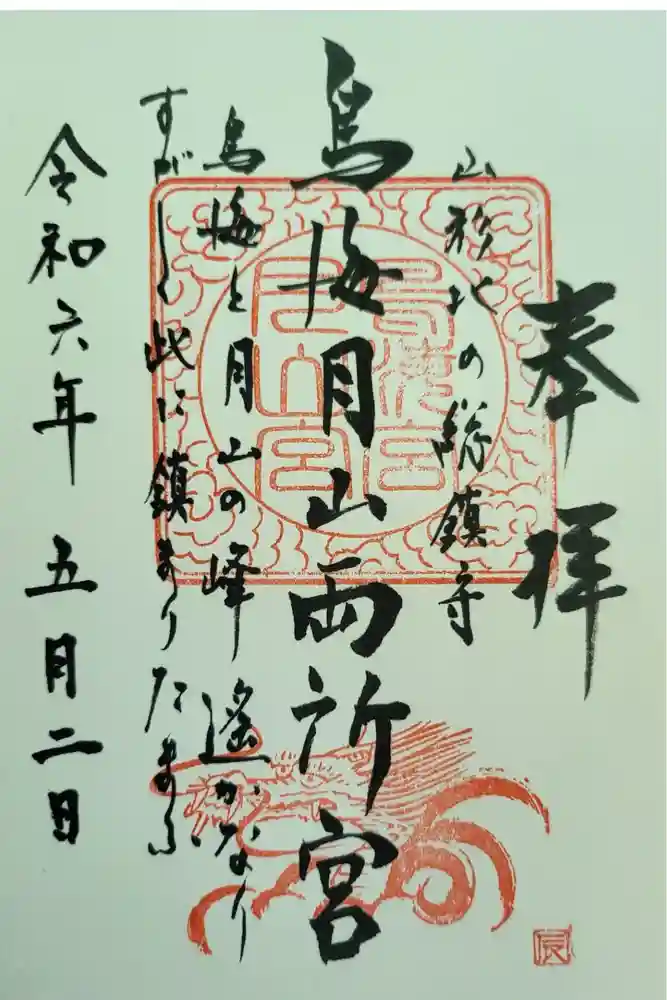 奉拝
山形北の総鎮守
鳥海月山両所宮
鳥海と月山の峰遥かなり
すがしく此に鎮まりたまふ
令和六年五月二日
鳥海宮
月山宮
辰